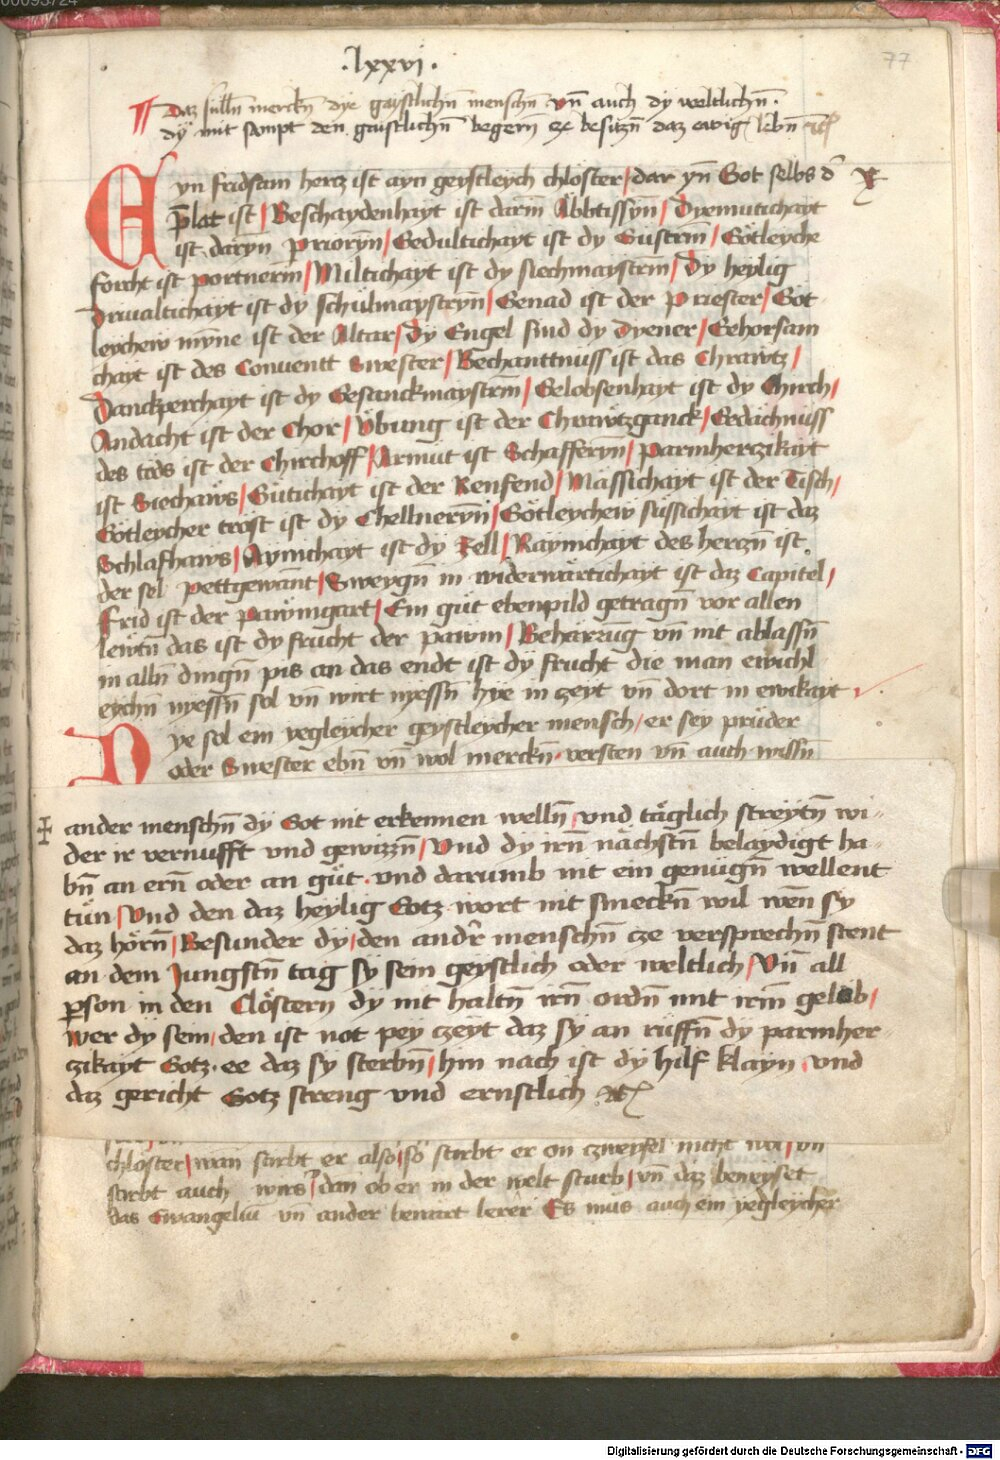 .lxxvi.
77
Daz sülln̄ merckn̄ dye gaystlichn̄ menschn̄ vn̄ auch dy weltlichn̄.
dy mit sampt den gaistlichn̄ begern̄ ze besitzn̄ daz ewig lebn̄
Eyn fridsam hercz ist ayn geystleych chloster / dar yn̄ Got selbs d̄
p̄lat ist / Beschaydenhayt ist darin̄ Äbbtissyn̄ / Dyemutichayt
ist daryn prioryn̄ / Gedultichayt ist dy Gustrin̄ / Götleyche
forcht ist portnerin̄ / Miltichayt ist dy siechmaystrin̄ / Dy heylig
Driualtichayt ist dy schulmaystryn̄ / Genad ist der priester / Got
leychew myn̄e ist der Altar / Dy Engel sind dy dyener / Gehorsam
chayt ist des Conuentt Swester / Bechanttnuss ist das Chrawtz /
Danckperchayt ist dy Gesanckmaystrin̄ / Gelobsenhayt ist dy Chirch /
Andacht ist der Chor / Übung ist der Chrawtzganck / Gedächnuss
des tods ist der Chirchoff / Armut ist Schafferyn̄ / parmherczikayt
ist Siechaws / Gutichayt ist der Renfend / Mässichayt ist der Tisch /
Götleycher trost ist dy Chellneryn̄ / Götleychew süssichayt ist daz
Schlafhaws / Aynichayt ist dy Zell / Raynichayt des herczn̄ ist
der sel pettgewant / Sweygn̄ in widerwärtichayt ist daz Capitel /
Frid ist der pawmgart / Ein gut ebenpild getragn̄ vor allen
lewtn̄ das ist dy frucht der pawm / Beharrūg vn̄ nit ablassn̄
in alln̄ dingn̄ pis an das endt ist dy frucht die man ewichl
eychn̄ nyessn̄ sol vn̄ wirt nyessn̄ hye in zeyt vn̄ dort in ewikayt
Dye sol ein yegleycher geystleycher mensch / er sey prüder
oder Swester ebn̄ vn̄ wol merckn̄ versten vn̄ auch wissn̄
ander menschn̄ dy Got nit erkennen welln̄ / vnd täglich streytn̄ wi-
der ir vernufft vnd gewizzn̄ / Vnd dy irn̄ nächstn̄ belaydigt ha-
bn̄ an ern̄ oder an güt . vnd darumb nit ein genügn̄ wellent
tün / Vnd den daz heylig Gotz wort nit smeckn̄ wil wen̄ sy
daz hörn̄ / Besunder dy / den and̄r menschn̄ cze versprechn̄ stent
an dem Jungstn̄ tag sy sein geystlich oder weltlich / Vn̄ all
p̄son in den Clöstern dy nit haltn̄ irn̄ ordn̄ mit irm̄ gelüb /
wer dy sein / den ist not pey czeyt daz sy an rüffn̄ dy parmher-
czikayt Gotz . ee daz sy sterbn̄ / hin nach ist dy hilf klayn / vnd
daz gericht Gotz streng vnd ernstlich
chlöster / wan stirbt er also / so stirbt er on zweyfel nicht wol / vn̄
stirbt auch wirs / dan ob er in der welt sturb / vn̄ daz beweyset
das Ewangeliū vn̄ ander bewart lerer Es mus auch ein yedgleycher
Digitalisierung gefördert durch die Deutsche Forschungsgemeinschaft - DFG